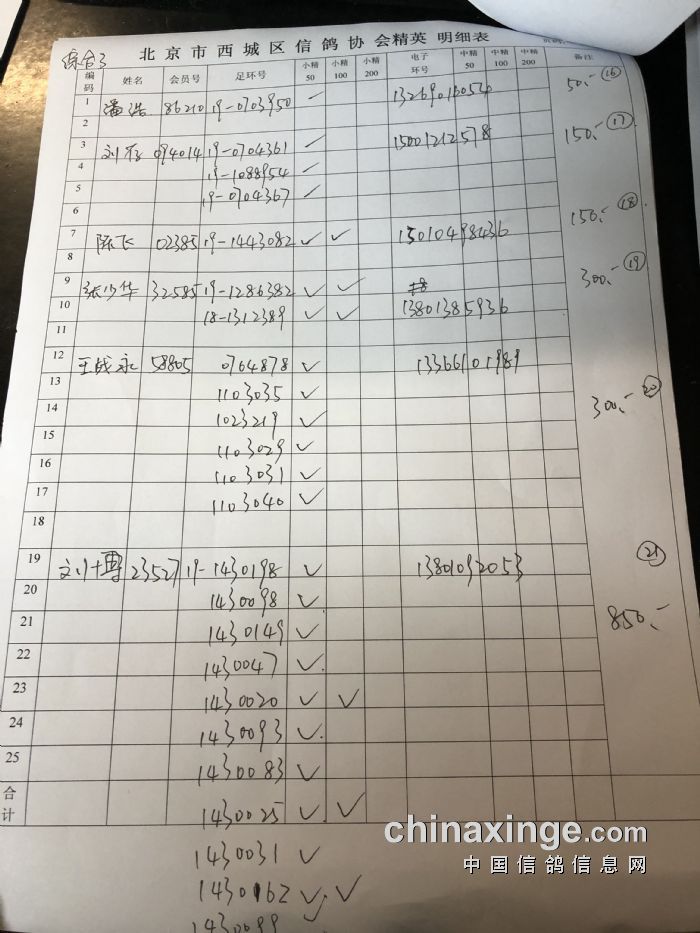 综合3 北京市西城区信鸽协会精英 明细表
编码 姓名 会员号 足环号 小精50 小精100 小精200 电子环号 中精50 中精100 中精200 备注
1 潘浩 86210 19-0703950 ✓ 13269016054 50.- ⑯
2
3 094014 19-0704361 ✓ 15001212578 150.- ⑰
4 19-1088954 ✓
5 19-0704367 ✓
6
7 陈飞 02385 19-1443082 ✓ ✓ 15010498436 150.- ⑱
8
9 张少华 32585 19-1286382 ✓ ✓ 300.- ⑲
10 18-1312389 ✓ ✓ 13801385936
11
12 王战永 58805 0764878 ✓ 13366101989
13 1103035 ✓
14 1023219 ✓ 300.- ⑳
15 1103029 ✓
16 1103031 ✓
17 1103040 ✓
18
19 23527 19-1430198 ✓ 13801092053 ㉑
20 1430098 ✓
21 1430149 ✓ 850.-
22 1430047 ✓
23 1430020 ✓ ✓
24 1430093 ✓
25 1430083 ✓
合计 1430025 ✓ ✓
1430031 ✓
1430162 ✓ ✓
1430099 ✓
chinaxinge.com
中国信鸽信息网